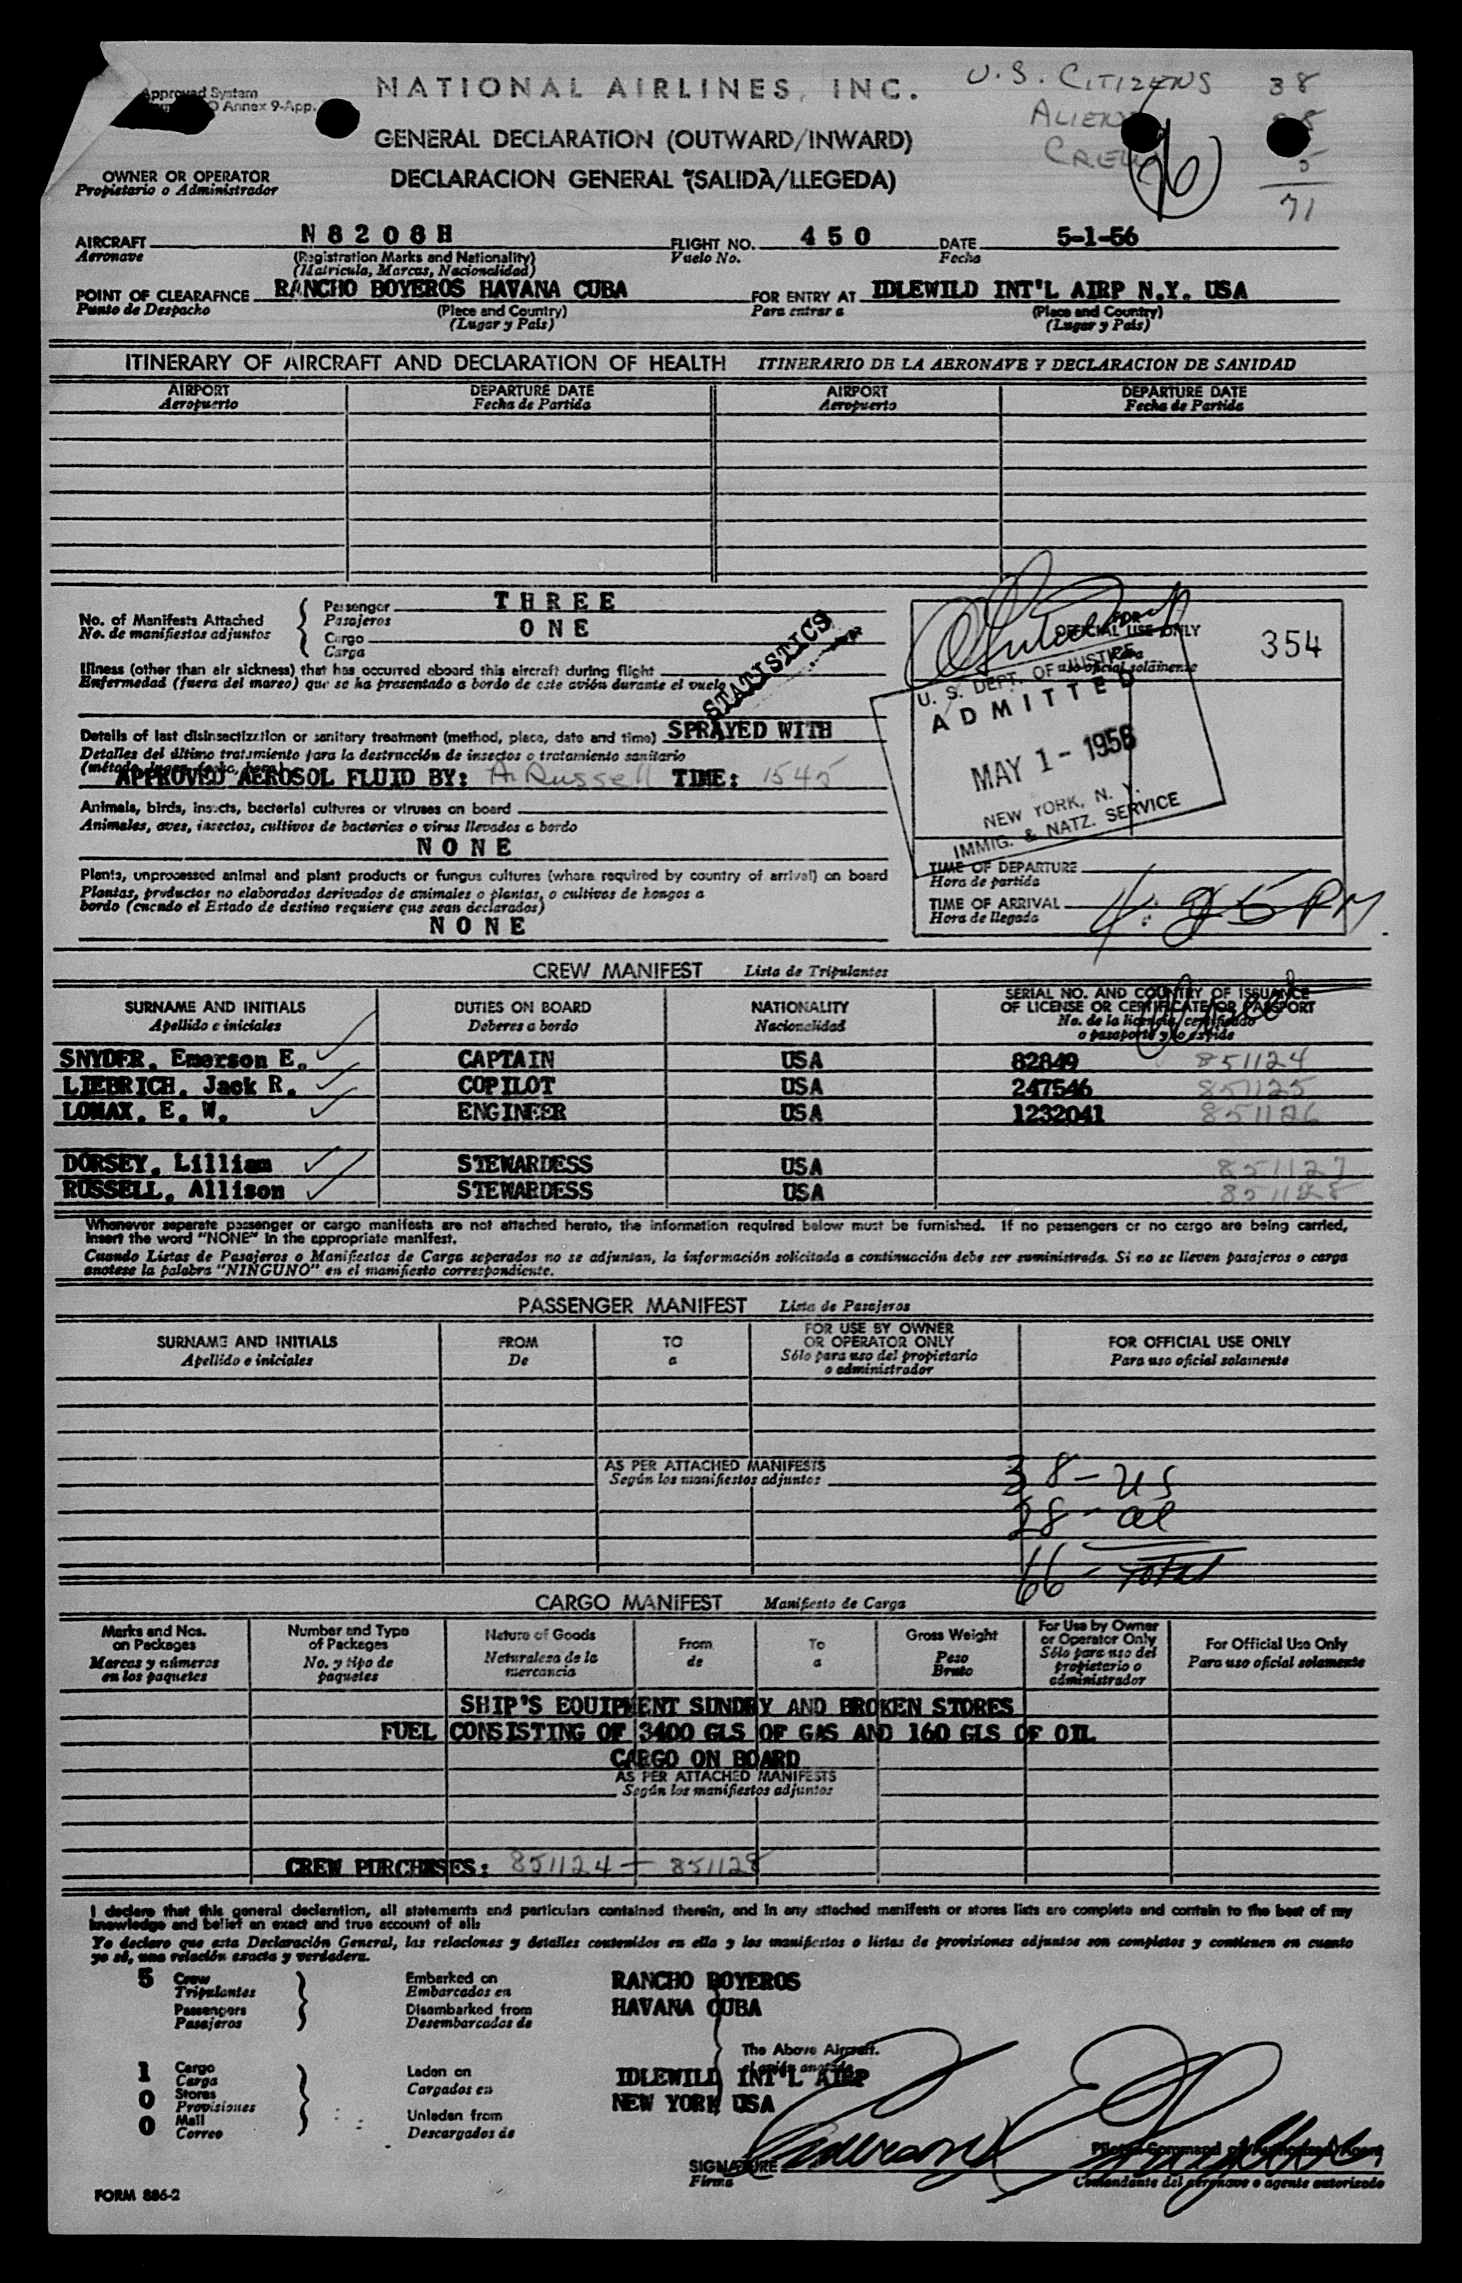 Approved System
Annex 9-App.
NATIONAL AIRLINES, INC.
U.S. CITIZENS 38
GENERAL DECLARATION (OUTWARD/INWARD)
DECLARACION GENERAL (SALIDA/LLEGEDA)
5
71
OWNER OR OPERATOR
Propietario o Administrador
AIRCRAFT N8208H FLIGHT NO. 450 DATE 5-1-56
Aeronave Vuelo No. Fecha
(Registration Marks and Nationality)
(Matricula, Marcas, Nacionalidad)
POINT OF CLEARAFNCE RANCHO BOYEROS HAVANA CUBA FOR ENTRY AT IDLEWILD INT'L AIRP N.Y. USA
Punto de Despacho (Place and Country) Para entrar a (Place and Country)
(Lugar y Pais) (Lugar y Pais)
ITINERARY OF AIRCRAFT AND DECLARATION OF HEALTH ITINERARIO DE LA AERONAVE Y DECLARACION DE SANIDAD
AIRPORT DEPARTURE DATE AIRPORT DEPARTURE DATE
Aeropuerto Fecha de Partida Aeropuerto Fecha de Partida
No. of Manifests Attached Passenger THREE
No. de manifiestos adjuntos Pasajeros
Cargo ONE
Carga
FOR
OFFICIAL USE ONLY
Para
uso oficial solamente
354
Illness (other than air sickness) that has occurred aboard this aircraft during flight
Enfermedad (fuera del mareo) que se ha presentado a bordo de este avión durante el vuelo
STATISTICS
U. S. DEPT. OF JUSTICE
ADMITTED
MAY 1 - 1956
NEW YORK, N. Y.
IMMIG. & NATZ. SERVICE
Details of last disinsectization or sanitary treatment (method, place, date and time) SPRAYED WITH
Detalles del último tratamiento para la destrucción de insectos o tratamiento sanitario
APPROVED AEROSOL FLUID BY: A. Russell TIME: 1545
Animals, birds, insects, bacterial cultures or viruses on board
Animales, aves, insectos, cultivos de bacterias o virus llevados a bordo
NONE
Plants, unprocessed animal and plant products or fungus cultures (where required by country of arrival) on board
Plantas, productos no elaborados derivados de animales o plantas, o cultivos de hongos a
bordo (cuando el Estado de destino requiere que sean declarados)
NONE
TIME OF DEPARTURE
Hora de partida
TIME OF ARRIVAL
Hora de llegada
CREW MANIFEST Lista de Tripulantes
SURNAME AND INITIALS DUTIES ON BOARD NATIONALITY SERIAL NO. AND COUNTRY OF ISSUANCE
OF LICENSE OR CERTIFICATE OR PASSPORT
Apellido e iniciales Deberes a bordo Nacionalidad No. de la licencia, certificado
o pasaporte y
SNYDER, Emerson E. CAPTAIN USA 82849 851124
LIEBRICH, Jack R. COPILOT USA 247546 851125
LOMAX, E. W. ENGINEER USA 1232041 851126
DORSEY, Lillian STEWARDESS USA 851127
RUSSELL, Allison STEWARDESS USA 851128
Whenever separate passenger or cargo manifests are not attached hereto, the information required below must be furnished. If no passengers or no cargo are being carried,
insert the word "NONE" in the appropriate manifest.
Cuando Listas de Pasajeros o Manifiestos de Carga separados no se adjuntan, la información solicitada a continuación debe ser suministrada. Si no se lleven pasajeros o carga
anotese la palabra "NINGUNO" en el manifiesto correspondiente.
PASSENGER MANIFEST Lista de Pasajeros
SURNAME AND INITIALS FROM TO FOR USE BY OWNER
OR OPERATOR ONLY FOR OFFICIAL USE ONLY
Apellido e iniciales De a Sólo para uso del propietario
o administrador Para uso oficial solamente
AS PER ATTACHED MANIFESTS
Según los manifiestos adjuntos
38 - US
28 - al
66 - Total
CARGO MANIFEST Manifiesto de Carga
Marks and Nos.
on Packages
Marcas y números
en los paquetes
Number and Type
of Packages
No. y tipo de
paquetes
Nature of Goods
Naturaleza de la
mercancia
From
de
To
a
Gross Weight
Peso
Bruto
For Use by Owner
or Operator Only
Sólo para uso del
propietario o
administrador
For Official Use Only
Para uso oficial solamente
SHIP'S EQUIPMENT SUNDRY AND BROKEN STORES
FUEL CONSISTING OF 3400 GLS OF GAS AND 160 GLS OF OIL
CARGO ON BOARD
AS PER ATTACHED MANIFESTS
Según los manifiestos adjuntos
CREW PURCHASES: 851124 - 851128
I declare that this general declaration, all statements and particulars contained therein, and in any attached manifests or stores lists are complete and contain to the best of my
knowledge and belief an exact and true account of all:
Yo declaro que esta Declaración General, las relaciones y detalles contenidos en ella y los manifiestos o listas de provisiones adjuntos son completos y contienen en cuanto
yo sé, una relación exacta y verdadera.
5 Crew Embarked on RANCHO BOYEROS
Tripulantes Embarcados en
Passengers Disembarked from HAVANA CUBA
Pasajeros Desembarcados de
The Above Aircraft.
1 Cargo Laden on IDLEWILD INT'L AIRP
Carga Cargados en
0 Stores NEW YORK USA
Provisiones
0 Mail Unladen from
Correo Descargados de
SIGNATURE
Firma
Pilot in Command or Authorized Agent
Comandante del aeronave o agente autorizado
FORM 886-2